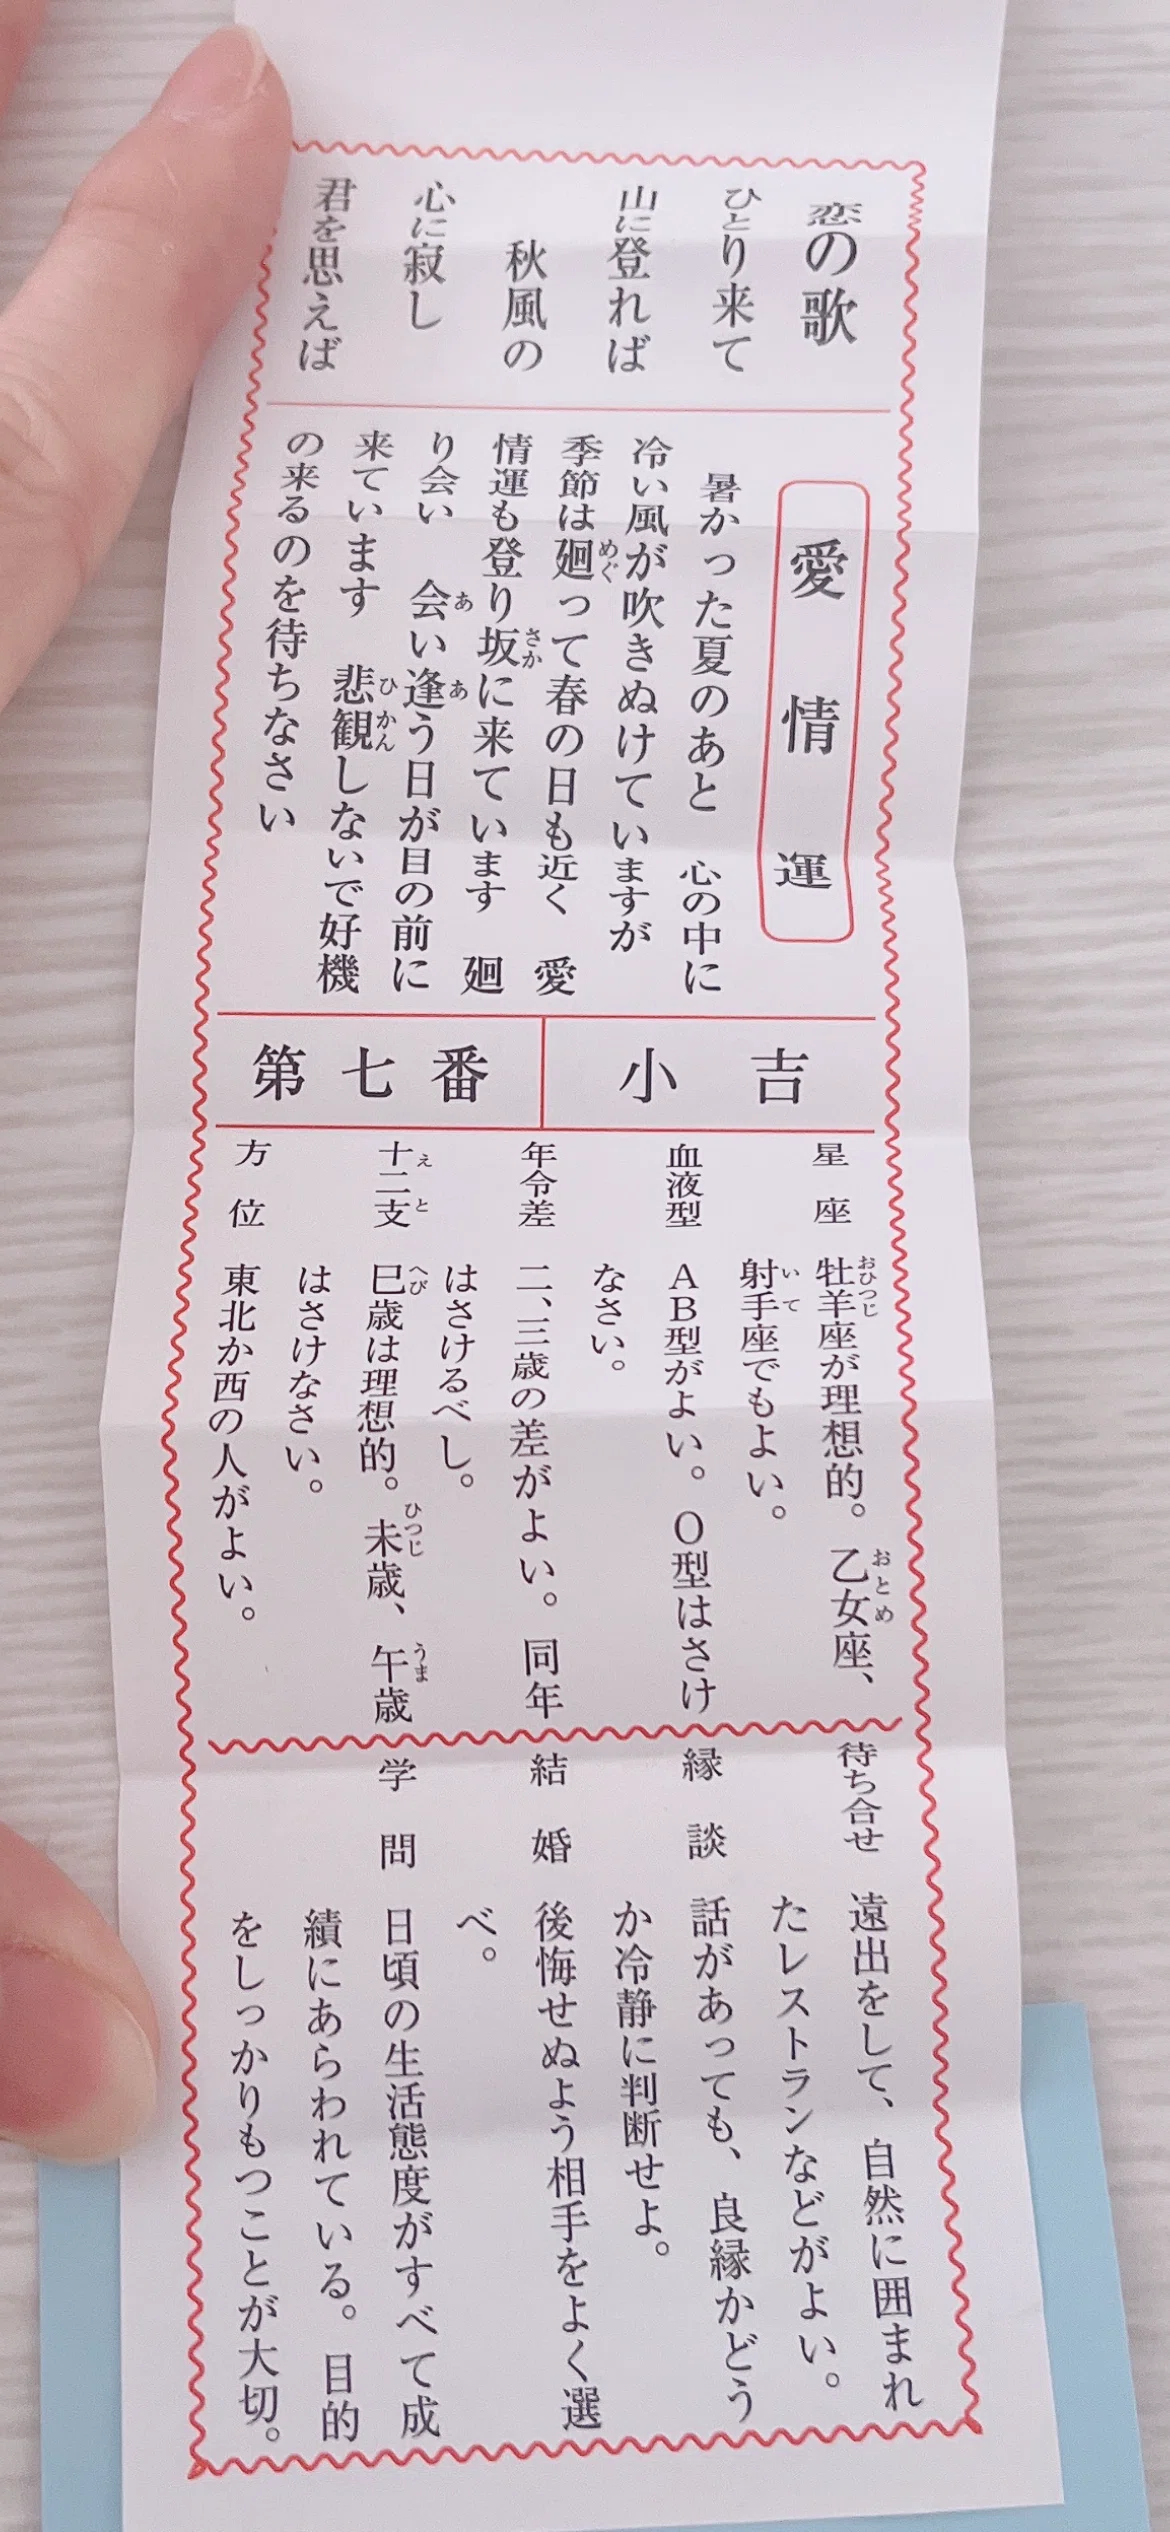 恋の歌
ひとり来て
山に登れば
秋風の
心に寂し
君を思えば
愛情運
暑かった夏のあと 心の中に
冷い風が吹きぬけていますが
季節は廻って春の日も近く 愛
情運も登り坂に来ています 廻
り会い 会い逢う日が目の前に
来ています 悲観しないで好機
の来るのを待ちなさい
第七番
小吉
星座 牡羊座が理想的。乙女座、
射手座でもよい。
血液型 AB型がよい。O型はさけ
なさい。
年令差 二、三歳の差がよい。同年
はさけるべし。
十二支 巳歳は理想的。未歳、午歳
はさけなさい。
方位 東北か西の人がよい。
待ち合せ 遠出をして、自然に囲まれ
たレストランなどがよい。
縁談 話があっても、良縁かどう
か冷静に判断せよ。
結婚 後悔せぬよう相手をよく選
べ。
学問 日頃の生活態度がすべて成
績にあらわれている。目的
をしっかりもつことが大切。